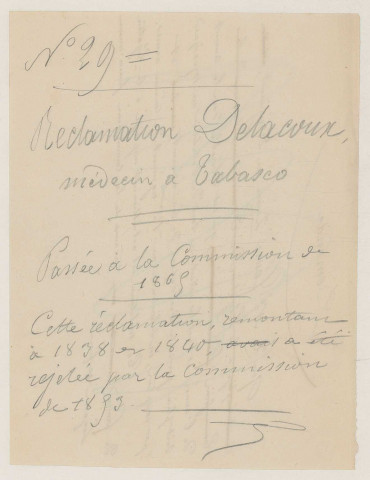 N° 29 =
Reclamation Delacoux,
médecin à Tabasco
Passée à la Commission de
1865
Cette réclamation, remontant
à 1838 et 1840, avait a été
rejetée par la Commission
de 1853.